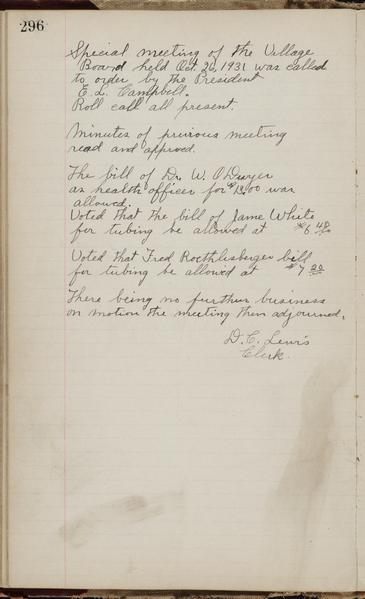 296
Special meeting of the Village
Board held Oct. 26, 1931 was called
to order by the President
E. L. Campbell.
Roll call all present.
Minutes of previous meeting
read and approved.
The bill of Dr. W. O'Dwyer
as health officer for $13.00 was
allowed.
Voted that the bill of Jame White
for tubing be allowed at $6.40
Voted that Fred Roethlisberger bill
for tubing be allowed at $7.20
There being no further business
on motion the meeting then adjourned.
D. C. Lewis
Clerk.